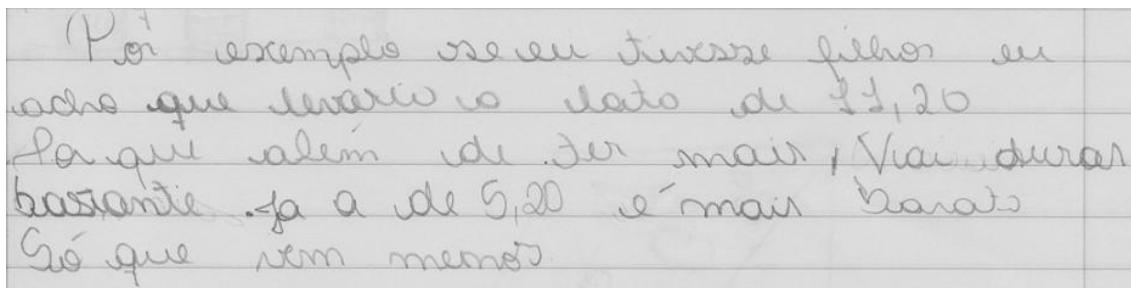 Por exemplo se eu tivesse filhos eu
acho que levaria o lato de 11,20
Porque além de ter mais, Vai durar
bastante. Ja a de 5,20 é mais barato
Só que vem menos